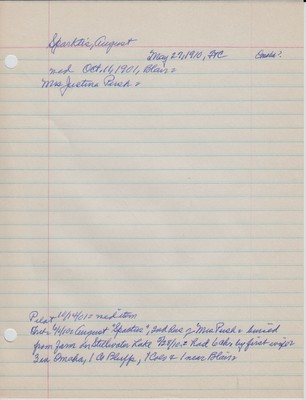 Sparktis, August
May 27, 1910, FC Omaha?
med Oct. 16, 1901, Blair =
Mrs Justina Push =
Pilot 10/14/01 = med item
August "Spartis", 2nd hus of Mrs Push = buried
from farm Stillwater Lake 5/28/10 = Had 6 chs by first wife =
3 in Omaha, 1 Co Bluffs, 1 = 1 near Blair =